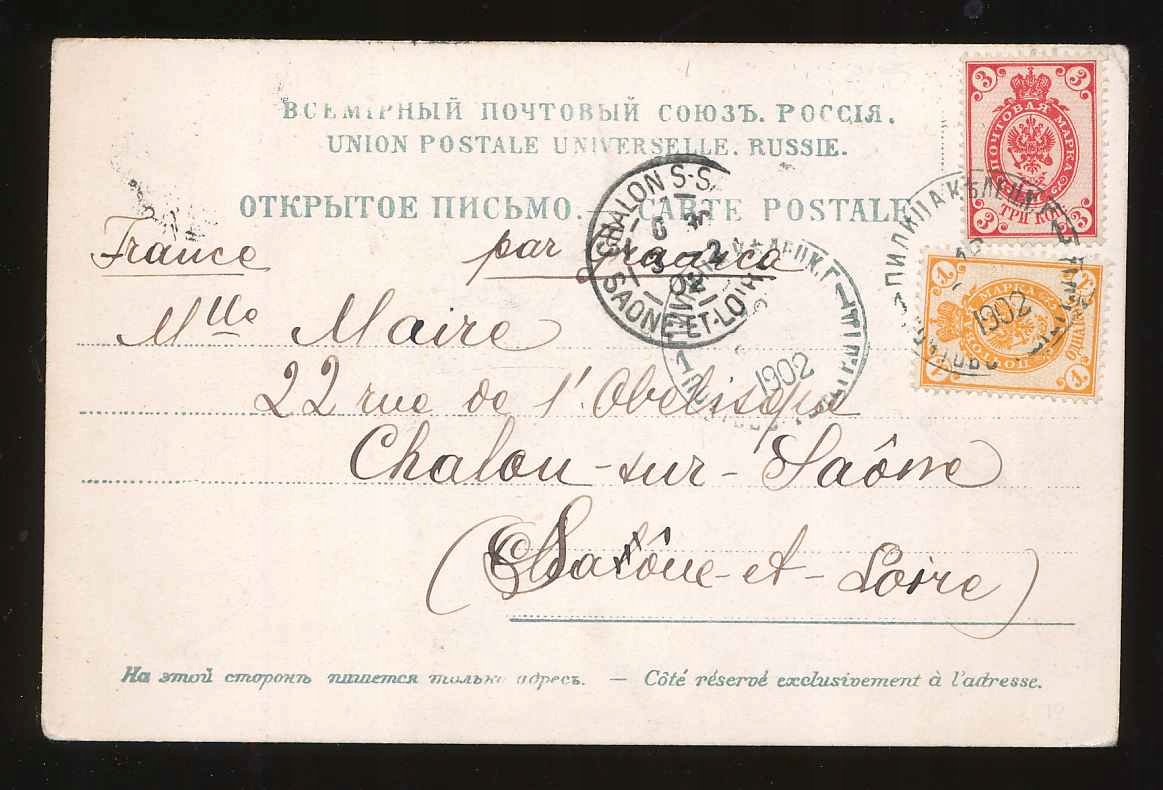 ВСЕМІРНЫЙ ПОЧТОВЫЙ СОЮЗЪ. РОССІЯ.
UNION POSTALE UNIVERSELLE. RUSSIE.
ОТКРЫТОЕ ПИСЬМО. — CARTE POSTALE
3 3
ПОЧТОВАЯ МАРКА
3 ТРИ КОП. 3
1 1
МАРКА
1 1
1902
CHALON-S-S
6
3 2
02
SAONE-ET-LOIRE
1902
France par
Mlle Maire
22 rue de l'Obélisque
Chalon-sur-Saône
(Saône-et-Loire)
На этой сторонѣ пишется только адресъ. — Côté réservé exclusivement à l'adresse.